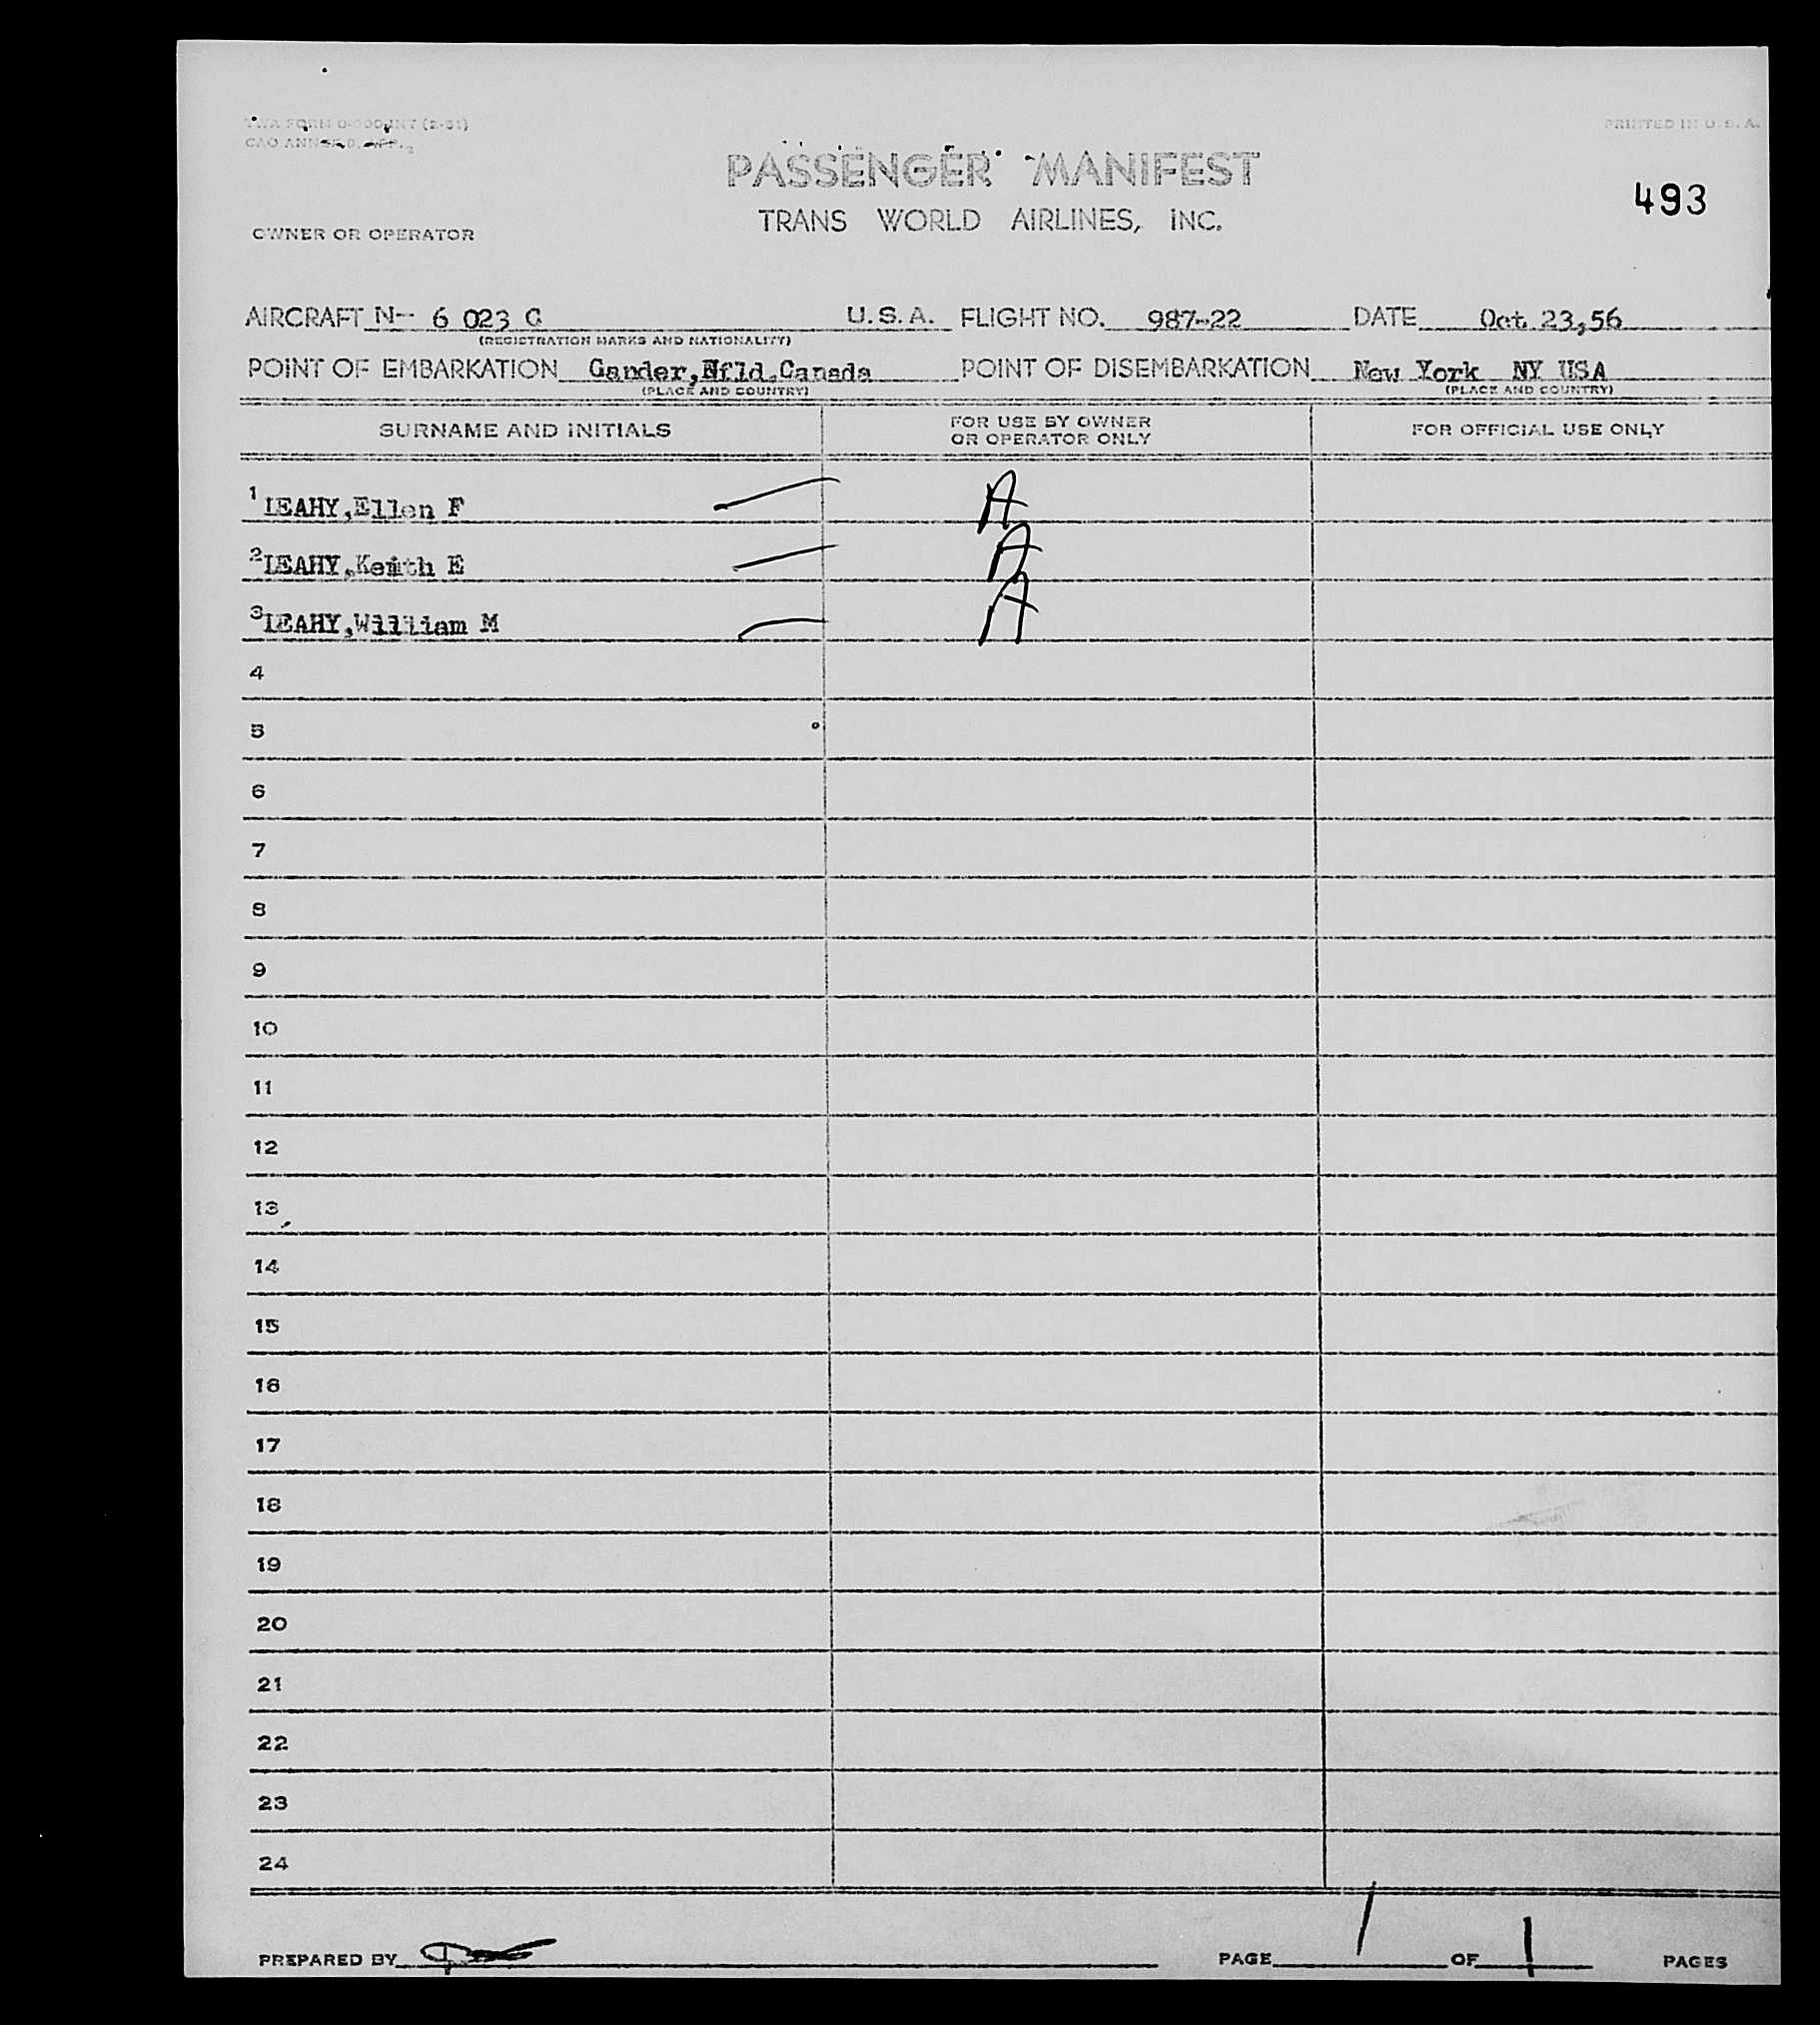 TWA FORM (2-51)
PRINTED IN U. S. A.
CAO
PASSENGER MANIFEST
493
TRANS WORLD AIRLINES, INC.
OWNER OR OPERATOR
AIRCRAFT N-- 6 023 C U.S.A. FLIGHT NO. 987-22 DATE Oct 23,56
(REGISTRATION MARKS AND NATIONALITY)
POINT OF EMBARKATION Gander,Nfld.Canada POINT OF DISEMBARKATION New York NY USA
(PLACE AND COUNTRY) (PLACE AND COUNTRY)
SURNAME AND INITIALS FOR USE BY OWNER OR OPERATOR ONLY FOR OFFICIAL USE ONLY
1 LEAHY,Ellen F A
2 LEAHY,Keith E A
3 LEAHY,William M A
4
5
6
7
8
9
10
11
12
13
14
15
16
17
18
19
20
21
22
23
24
PREPARED BY PAGE 1 OF 1 PAGES